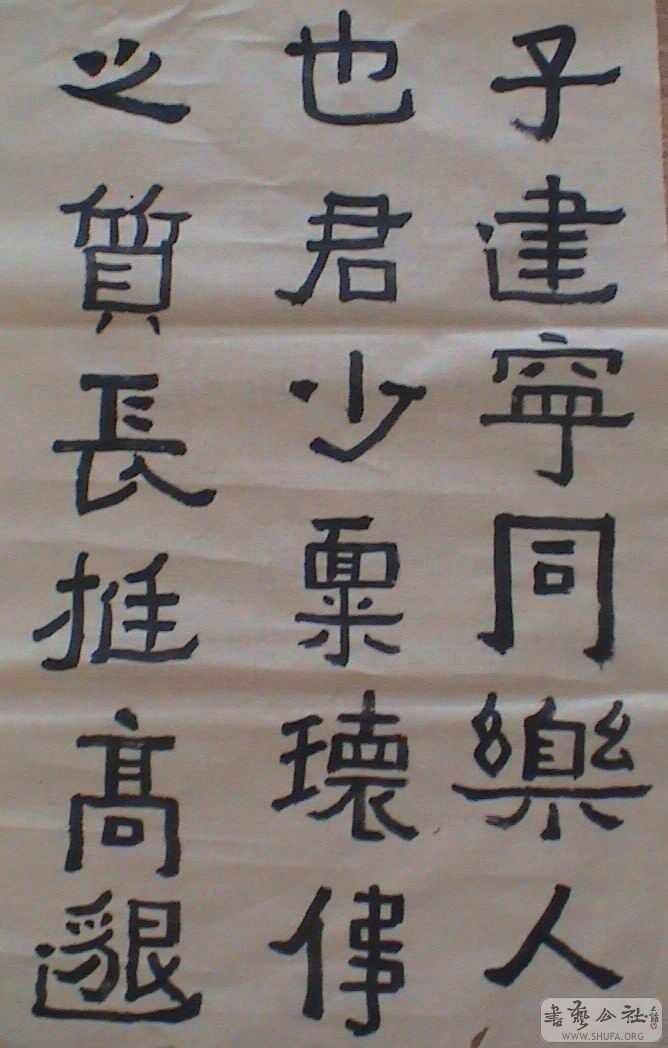 子建寧同樂人
也君少稟瓌偉
之質長挺高邈
書藝公社
WWW.SHUFA.ORG